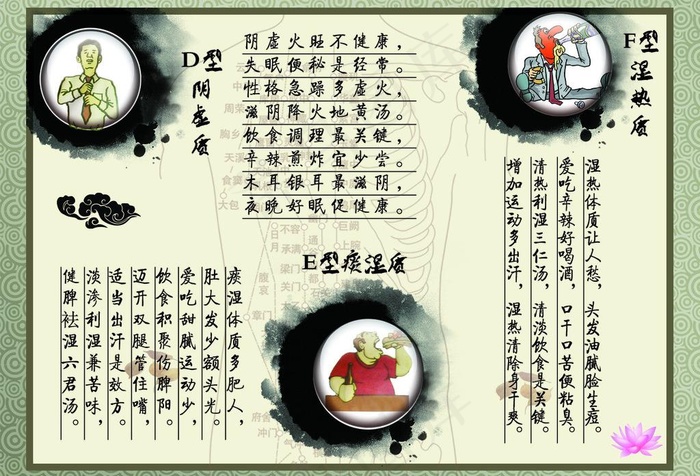 D型阴虚质
阴虚火旺不健康，
失眠便秘是经常。
性格急躁多虚火，
滋阴降火地黄汤。
饮食调理最关键，
辛辣煎炸宜少尝。
木耳银耳最滋阴，
夜晚好眠促健康。
E型痰湿质
痰湿体质多肥人，
肚大发少额头光。
爱吃甜腻运动少，
饮食积聚伤脾阳。
迈开双腿管住嘴，
适当出汗是效方。
淡渗利湿兼苦味，
健脾祛湿六君汤。
F型湿热质
湿热体质让人愁，头发油腻脸生痘。
爱吃辛辣好喝酒，口干口苦便粘臭。
清热利湿三仁汤，清淡饮食是关键。
增加运动多出汗，湿热清除身干爽。
周荣
胸乡
天溪
食窦
大包
日月
不容
承满
梁门
关门
腹哀
章门
巨阙
上脘
府舍
冲门